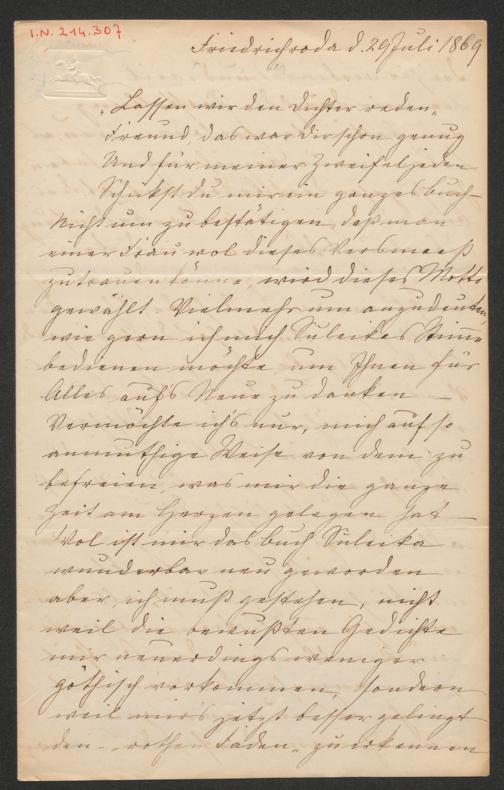 I.N. 214.307
Friedrichroda d. 29 Juli 1869
„Lassen wir den Dichter reden„
Freund, das war Dir schon genug
Und für meiner Zweifel jeden
Schickst du mir ein ganzes Buch –
Nicht um zu bestätigen, daß man
einer Frau wol dieses Versmaaß
zutrauen könne, wird dieses Motto
gewählt. Vielmehr um anzudeuten,
wie gern ich mich Suleikas Stimme
bedienen möchte um Ihnen für
Alles auf's Neue zu danken –
Vermöchte ich's nur, mich auf so
anmuthige Weise von dem zu
befreien, was mir die ganze
Zeit am Herzen gelegen hat –
Wol ist mir das Buch Suleika
wunderbar neu geworden
aber, ich muß gestehen, nicht
weil die bewußten Gedichte
mir neuerdings weniger
göthisch vorkommen, sondern
weil mir's jetzt besser gelingt
den „rothen Faden„ zu erkennen